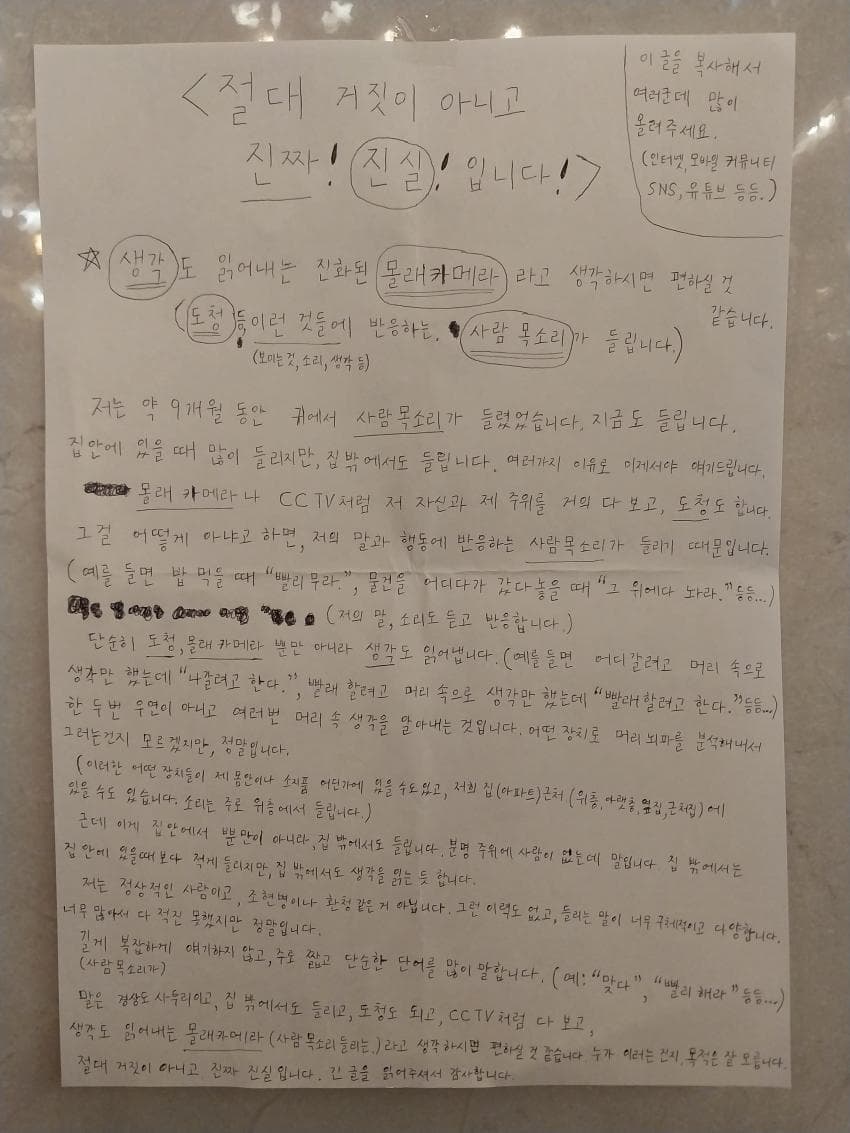 <절대 거짓이 아니고
진짜! 진실! 입니다!>
이 글을 복사해서
여러군데 많이
올려주세요.
(인터넷, 모바일 커뮤니티
SNS, 유튜브 등등.)
☆ 생각도 읽어내는 진화된 몰래카메라 라고 생각하시면 편하실 것
같습니다.
(도청 등, 이런 것들에 반응하는, 사람 목소리가 들립니다.)
(보이는것, 소리, 생각 등)
저는 약 9개월 동안 귀에서 사람목소리가 들렸었습니다. 지금도 들립니다.
집안에 있을 때 많이 들리지만, 집 밖에서도 들립니다. 여러가지 이유로 이제서야 얘기드립니다.
몰래 카메라나 CCTV처럼 저 자신과 제 주위를 거의 다 보고, 도청도 합니다.
그걸 어떻게 아냐고 하면, 저의 말과 행동에 반응하는 사람목소리가 들리기 때문입니다.
(예를 들면 밥 먹을 때 "빨리 무라.", 물건을 어디다가 갔다놓을 때 "그 위에다 놔라." 등등...)
(저의 말, 소리도 듣고 반응합니다.)
단순히 도청, 몰래카메라 뿐만 아니라 생각도 읽어냅니다. (예를 들면 어디 갈려고 머리 속으로
생각만 했는데 "나갈려고 한다.", 빨래 할려고 머리 속으로 생각만 했는데 "빨래 할려고 한다." 등등...)
한 두번 우연이 아니고 여러번 머리 속 생각을 알아내는 것입니다. 어떤 장치로 머리 뇌파를 분석해내서
그러는건지 모르겠지만, 정말입니다.
(이러한 어떤 장치들이 제 몸안이나 소지품 어딘가에 있을 수도 있고, 저희 집(아파트) 근처 (위층, 아랫층, 옆집, 근처집)에
있을 수도 있습니다. 소리는 주로 위층에서 들립니다.)
근데 이게 집안에서 뿐만이 아니라, 집 밖에서도 들립니다. 분명 주위에 사람이 없는데 말입니다. 집 밖에서는
집 안에 있을때 보다 적게 들리지만, 집 밖에서도 생각을 읽는 듯 합니다.
저는 정상적인 사람이고, 조현병이나 환청같은 거 아닙니다. 그런 이력도 없고, 들리는 말이 너무 구체적이고 다양합니다.
너무 많아서 다 적진 못했지만 정말입니다.
길게 복잡하게 얘기하지 않고, 주로 짧고 단순한 단어를 많이 말합니다. (예: "맞다", "빨리 해라" 등등...)
(사람목소리가)
말은 경상도 사투리이고, 집 밖에서도 들리고, 도청도 되고, CCTV처럼 다 보고,
생각도 읽어내는 몰래카메라 (사람 목소리 들리는,) 라고 생각하시면 편하실 것 같습니다. 누가 이러는 건지, 목적은 잘 모릅니다.
절대 거짓이 아니고 진짜 진실입니다. 긴 글을 읽어주셔서 감사합니다.